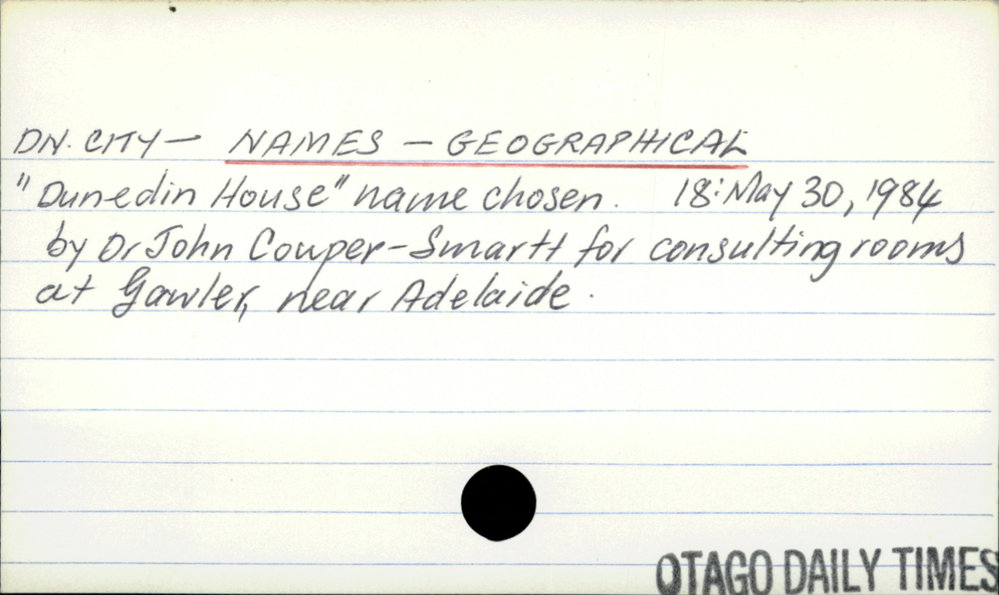 DN. CITY — NAMES — GEOGRAPHICAL
"Dunedin House" name chosen. 18: May 30, 1984
by Dr John Couper-Smartt for consulting rooms
at Gawler, near Adelaide.
OTAGO DAILY TIMES